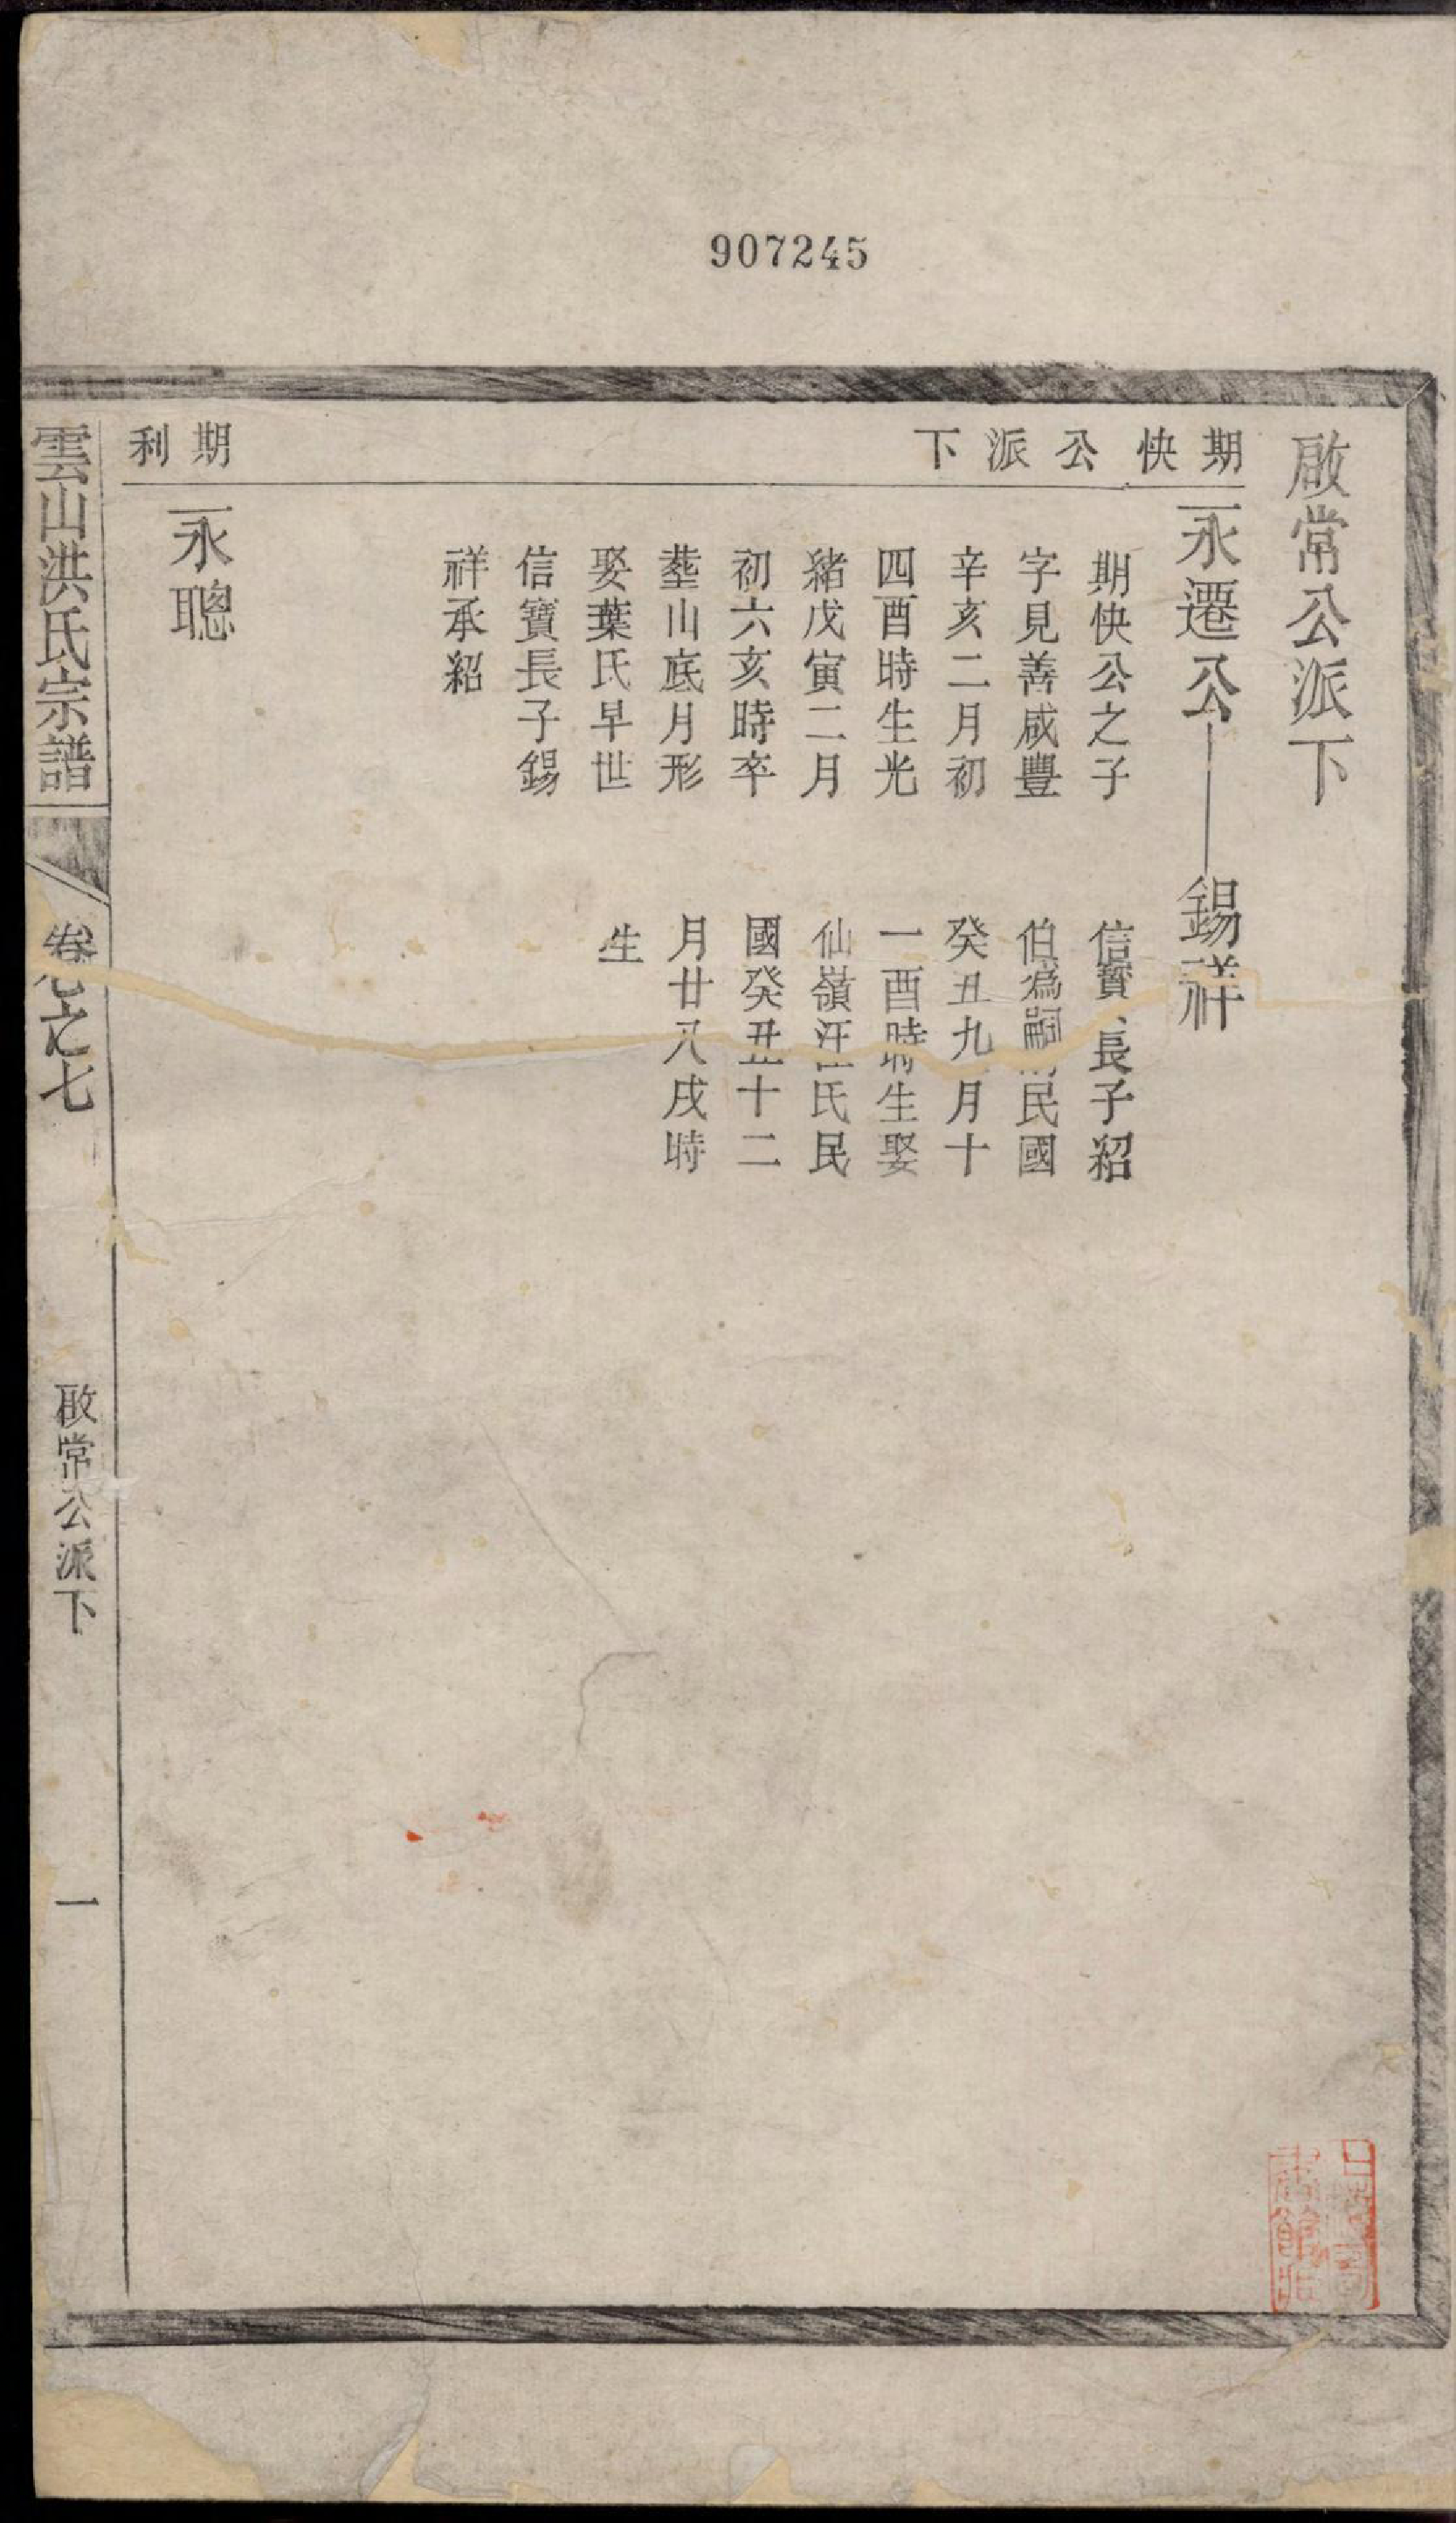 907245
啟常公派下
期快公派下
永遷公
錫祥
期快公之子
字見善咸豐
辛亥二月初
四酉時生光
緒戊寅二月
初六亥時卒
塟山底月形
娶葉氏早世
信寶長子錫
祥承紹
信寶長子紹
伯爲嗣民國
癸丑九月十
一酉時生娶
仙嶺汪氏民
國癸丑十二
月廿八戌時
生
期利
永聰
雲山洪氏宗譜
卷之七
啟常公派下
一